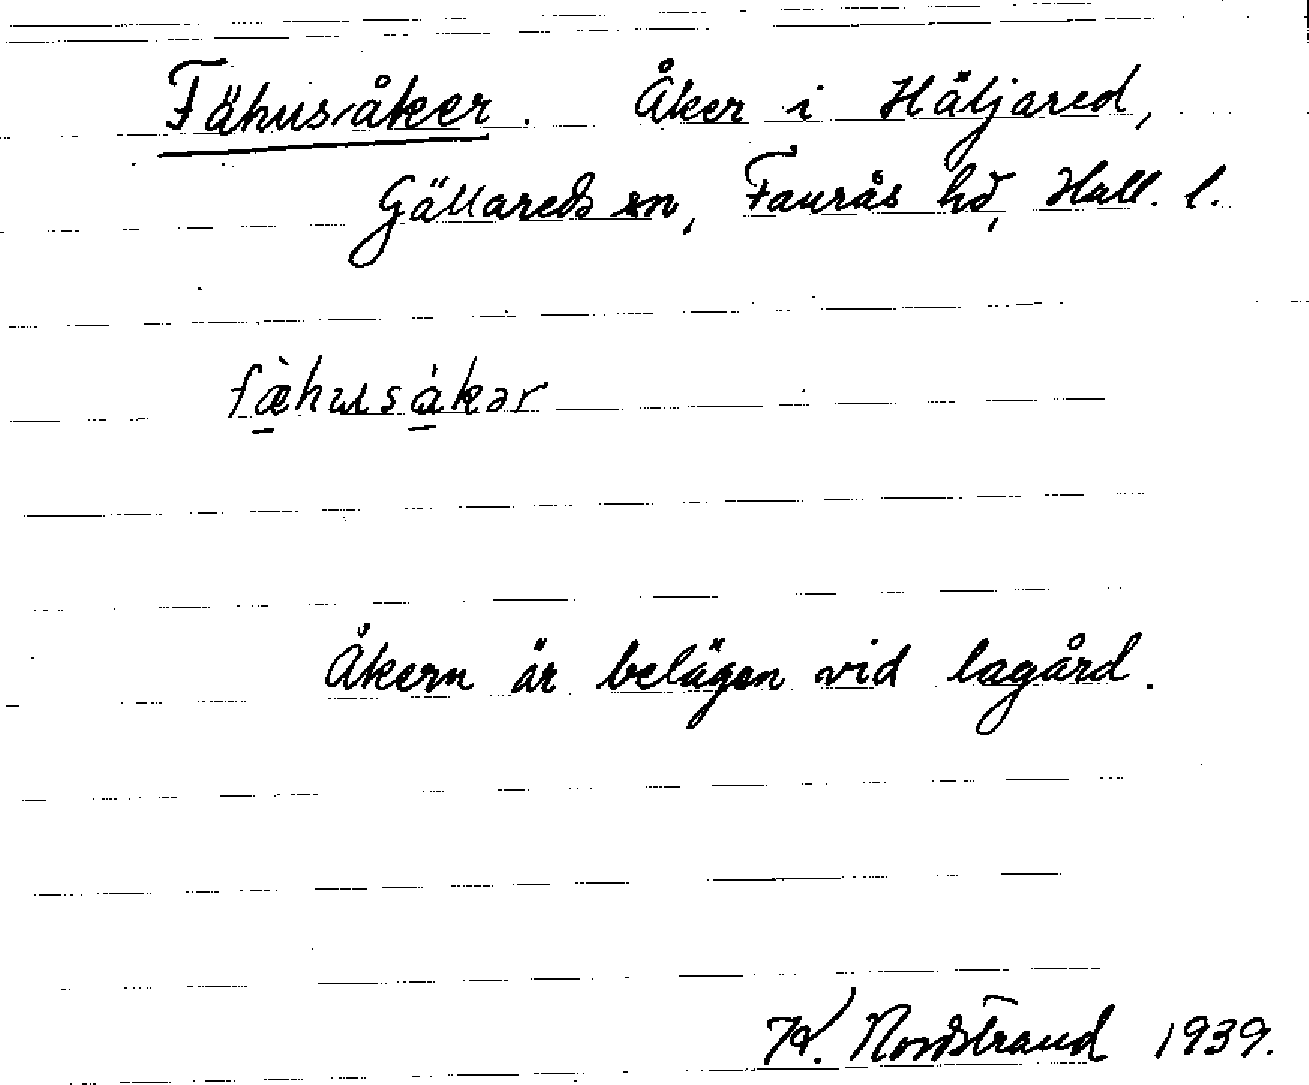 Fähusåker. Åker i Häljared,
Gällareds sn, Faurås hd, Hall. l.
fæ̀husákər
Åkern är belägen vid lagård.
K. Nordstrand 1939.